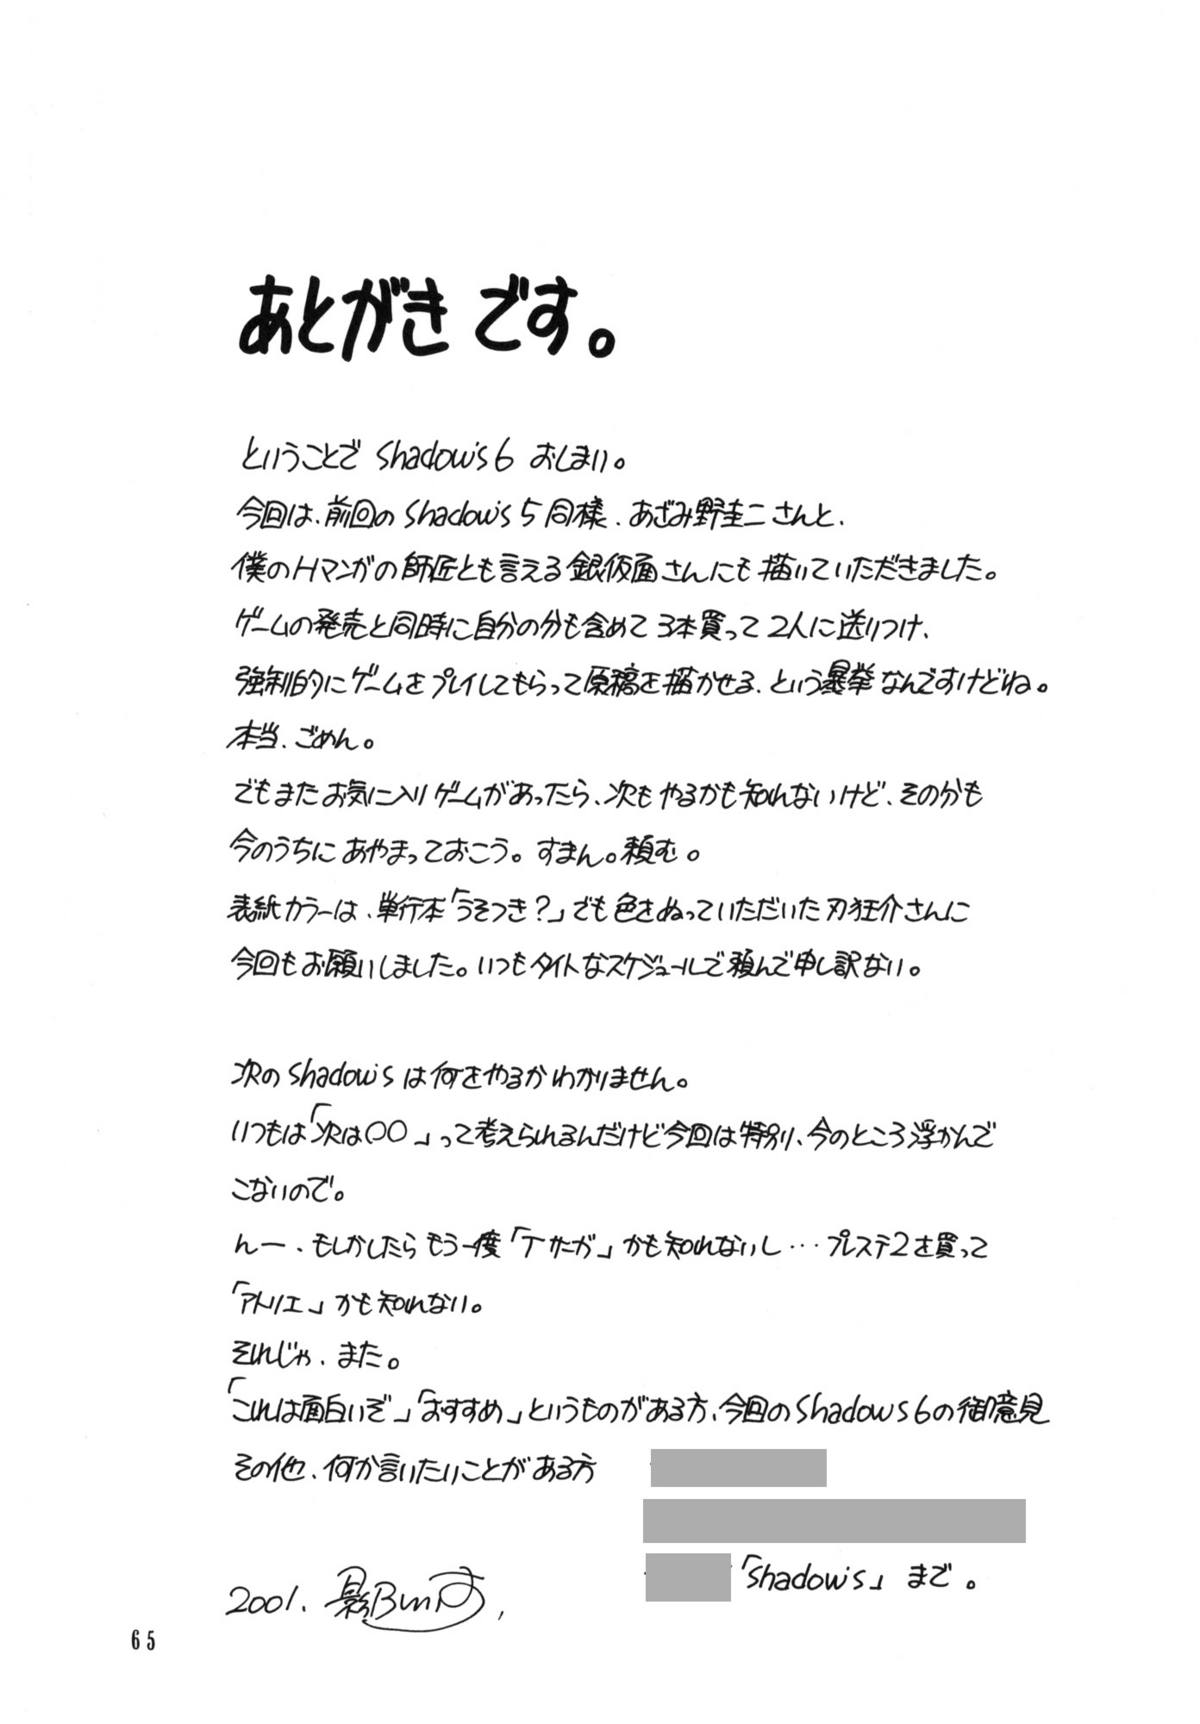 あとがきです。
ということで Shadow's 6 おしまい。
今回は、前回の Shadow's 5 同様、あざみ野圭二さんと、
僕のHマンガの師匠とも言える銀仮面さんにも描いていただきました。
ゲームの発売と同時に自分の分も含めて3本買って2人に送りつけ、
強制的にゲームをプレイしてもらって原稿を描かせる、という暴挙なんですけどね。
本当、ごめん。
でもまたお気に入りゲームがあったら、次もやるかも知れないけど、その分も
今のうちにあやまっておこう。すまん。頼む。
表紙カラーは、単行本「うそつき?」でも色をぬっていただいた刃狂介さんに
今回もお願いしました。いつもタイトなスケジュールで頼んで申し訳ない。
次の Shadow's は何をやるかわかりません。
いつもは「次は○○」って考えられるんだけど今回は特別、今のところ浮かんで
こないので。
んー、もしかしたらもう一度「Tサーガ」かも知れないし…プレステ2を買って
「アトリエ」かも知れない。
それじゃ、また。
「これは面白いぞ」「おすすめ」というものがある方、今回の Shadow's 6 の御意見
その他、何か言いたいことがある方
「Shadow's」まで。
2001.
65